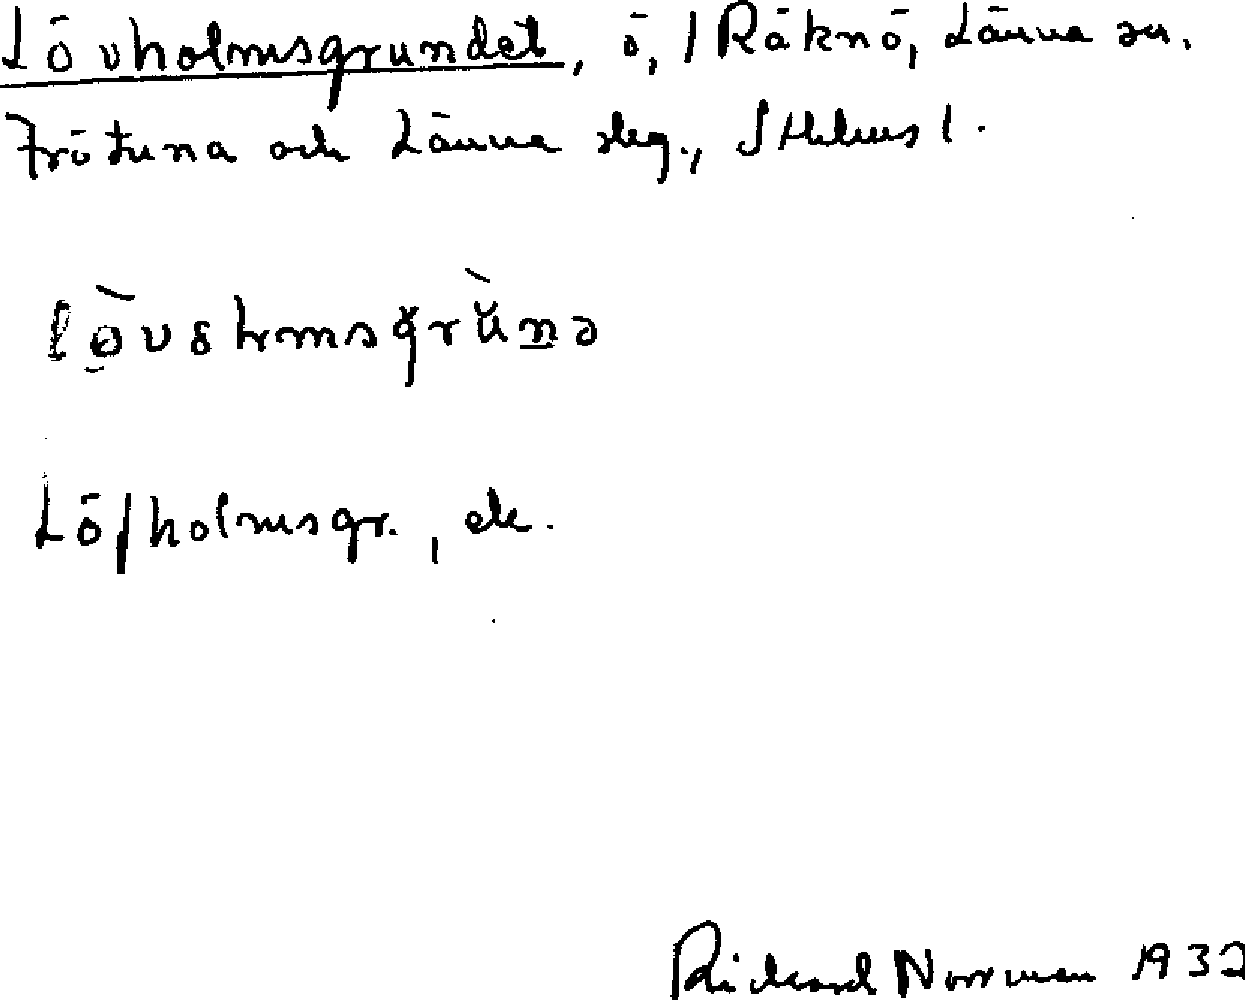 Lövholmsgrundet, ö, / Räknö, Länna sn.
Frötuna och Länna skg., Sthlms l.
Löfholmsgr., ek.
Rickard Norrman 1932